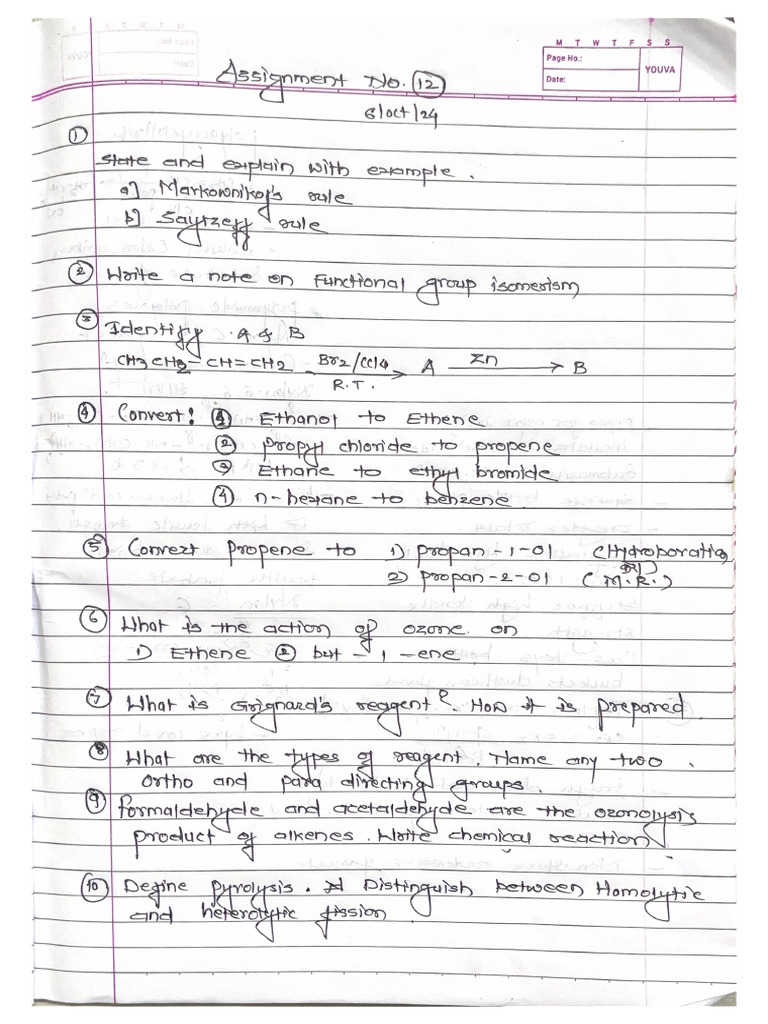 M T W T F S S
Page No.:
Date:
YOUVA
Assignment No. 12
6/oct/24
① State and explain with example.
a] Markownikof's rule
b] Saytzeff rule
② Write a note on Functional group isomerism
③ Identify A & B
CH3 CH2 - CH = CH2 Br2/CCl4 R.T. → A Zn → B
④ Convert: ① Ethanol to Ethene
② propyl chloride to propene
③ Ethane to ethyl bromide
④ n-hexane to benzene
⑤ Convert Propene to 1) propan-1-ol (Hydroboratio
2) propan-2-ol (M.R.)
⑥ What is the action of ozone on
1) Ethene ② but-1-ene.
⑦ What is Grignard's reagent? How it is prepared.
⑧ What are the types of reagent. Name any two
ortho and para directing groups.
⑨ formaldehyde and acetaldehyde are the ozonolysis
product of alkenes. Write chemical reaction
⑩ Define Pyrolysis. Distinguish between Homolytic
and heterolytic fission